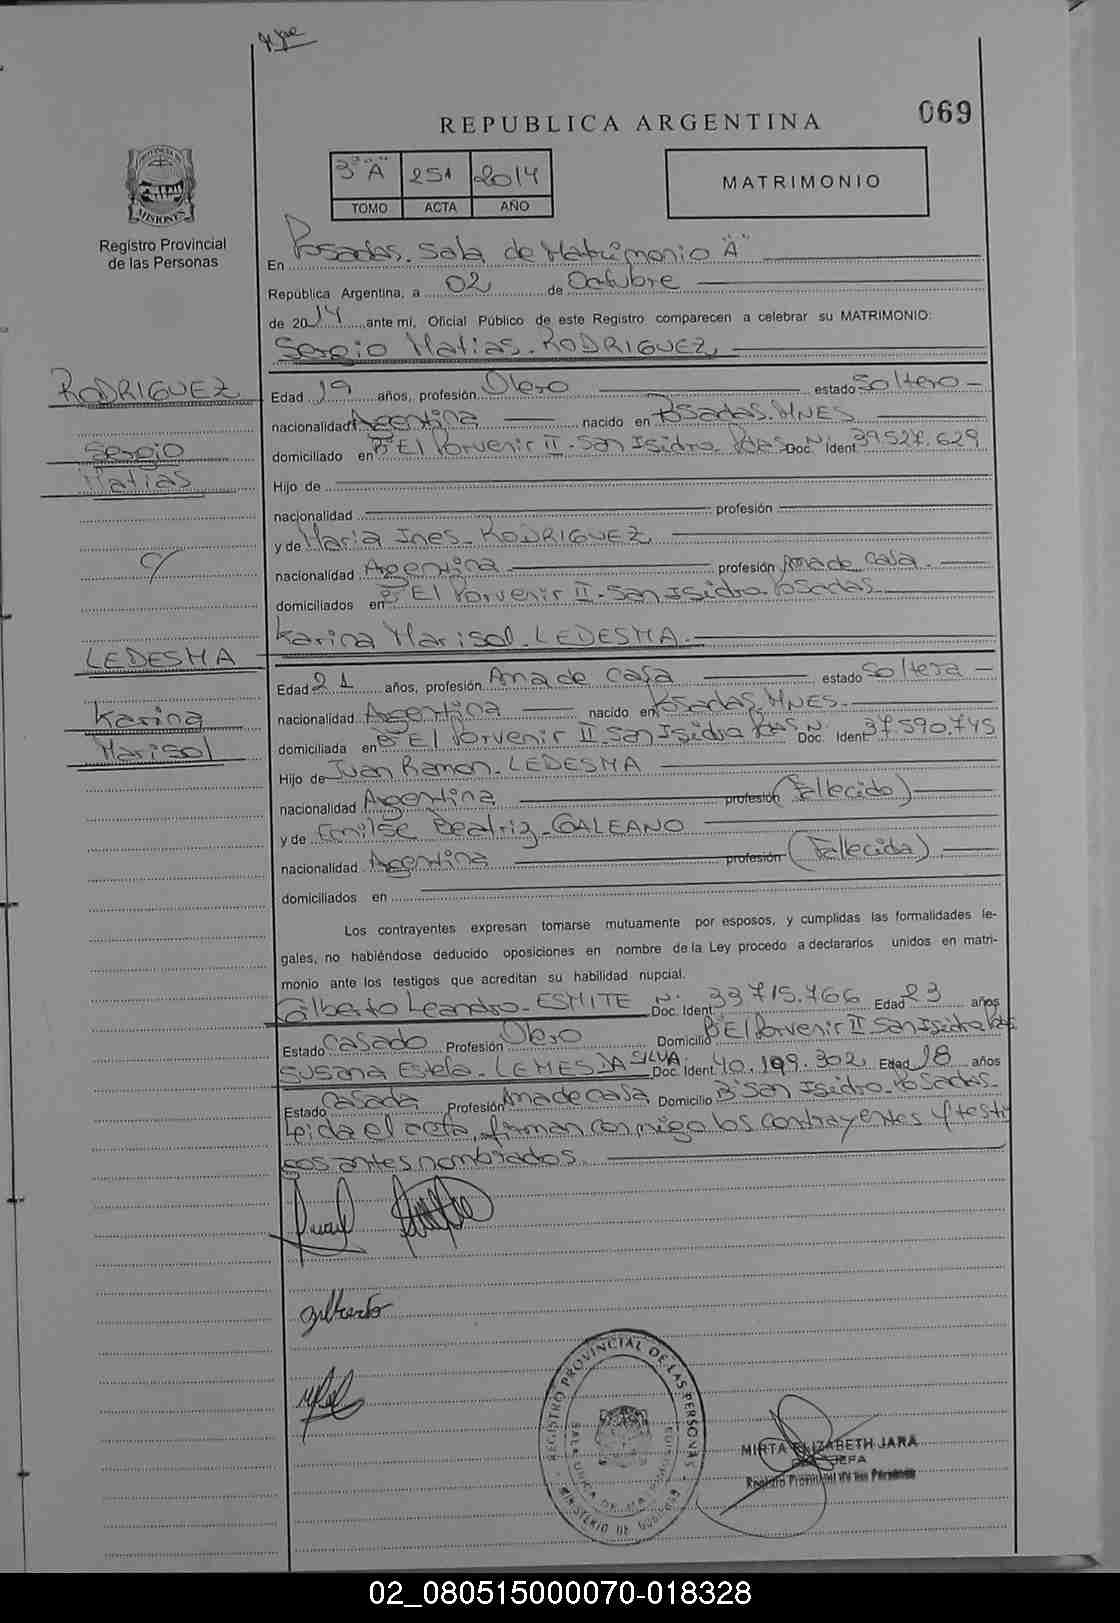 069
REPUBLICA ARGENTINA
3º "A" 251 2014
TOMO ACTA AÑO
MATRIMONIO
Registro Provincial
de las Personas
En Posadas. Sala de Matrimonio "A"
República Argentina, a 02 de Octubre
de 2014 ante mi, Oficial Público de este Registro comparecen a celebrar su MATRIMONIO:
Sergio Matias. RODRIGUEZ
RODRIGUEZ
Sergio
Matias
c/
LEDESMA
Karina
Marisol
Edad 19 años, profesión Olero estado Soltero
nacionalidad Argentina nacido en Posadas. MNES
domiciliado en Bº El Porvenir II. San Isidro. Pdas Doc. Ident Nº 39.527.629
Hijo de
nacionalidad profesión
y de Maria Ines. RODRIGUEZ
nacionalidad Argentina profesión Ama de casa.
domiciliados en Bº El Porvenir II. San Isidro. Posadas
Karina Marisol. LEDESMA.
Edad 21 años, profesión Ama de casa estado Soltera
nacionalidad Argentina nacido en Posadas. MNES.
domiciliada en Bº El Porvenir II. San Isidro Pdas Doc. Ident Nº 37.590.745
Hijo de Juan Ramon. LEDESMA
nacionalidad Argentina profesión (Fallecido)
y de Emilse Beatriz. GALEANO
nacionalidad Argentina profesión (Fallecida)
domiciliados en
Los contrayentes expresan tomarse mutuamente por esposos, y cumplidas las formalidades le-
gales, no habiéndose deducido oposiciones en nombre de la Ley procedo a declararlos unidos en matri-
monio ante los testigos que acreditan su habilidad nupcial.
Gilberto Leandro. ESMITE Doc. Ident Nº 33.715.766 Edad 23 años
Estado Casado Profesión Olero Domicilio Bº El Porvenir II San Isidro Pdas
Susana Estela. LEMES DA SILVA Doc. Ident 40.199.302 Edad 18 años
Estado Casada Profesión Ama de casa Domicilio Bº San Isidro. Posadas.
Leida el acta, firman conmigo los contrayentes y testi
gos antes nombrados.
Gilberto
REGISTRO PROVINCIAL DE LAS PERSONAS
MINISTERIO DE GOBIERNO
MIRTA ELIZABETH JARA
JEFA
Registro Provincial de las Personas
02_080515000070-018328